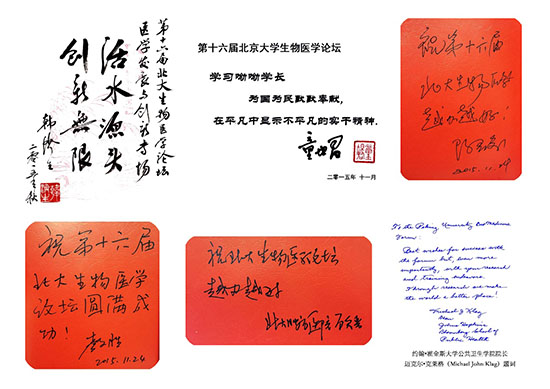 第十六届北大生物医学论坛
医学发展与创新专场
活水源头
创新無限
韩济生
二零一五年秋
第十六届北京大学生物医学论坛
学习呦呦学长
为国为民默默奉献，
在平凡中显示不平凡的实干精神.
二〇一五年 十一月
祝第十六届
北大生物医学
越办越好！
2015.11.24
祝第十六届
北大生物医学
论坛圆满成
功！
2015.11.24
祝北大生物医学论坛
越办越好
To the Peking University BioMedicine
Forum:
Best wishes for success with
the forum but, even more
importantly, with your research
and training endeavors.
Through research we make
the world a better place!
Michael J Klag
Dean
Johns Hopkins
Bloomberg School of
Public Health
约翰·霍金斯大学公共卫生学院院长
迈克尔·克莱格（Michael John Klag）题词